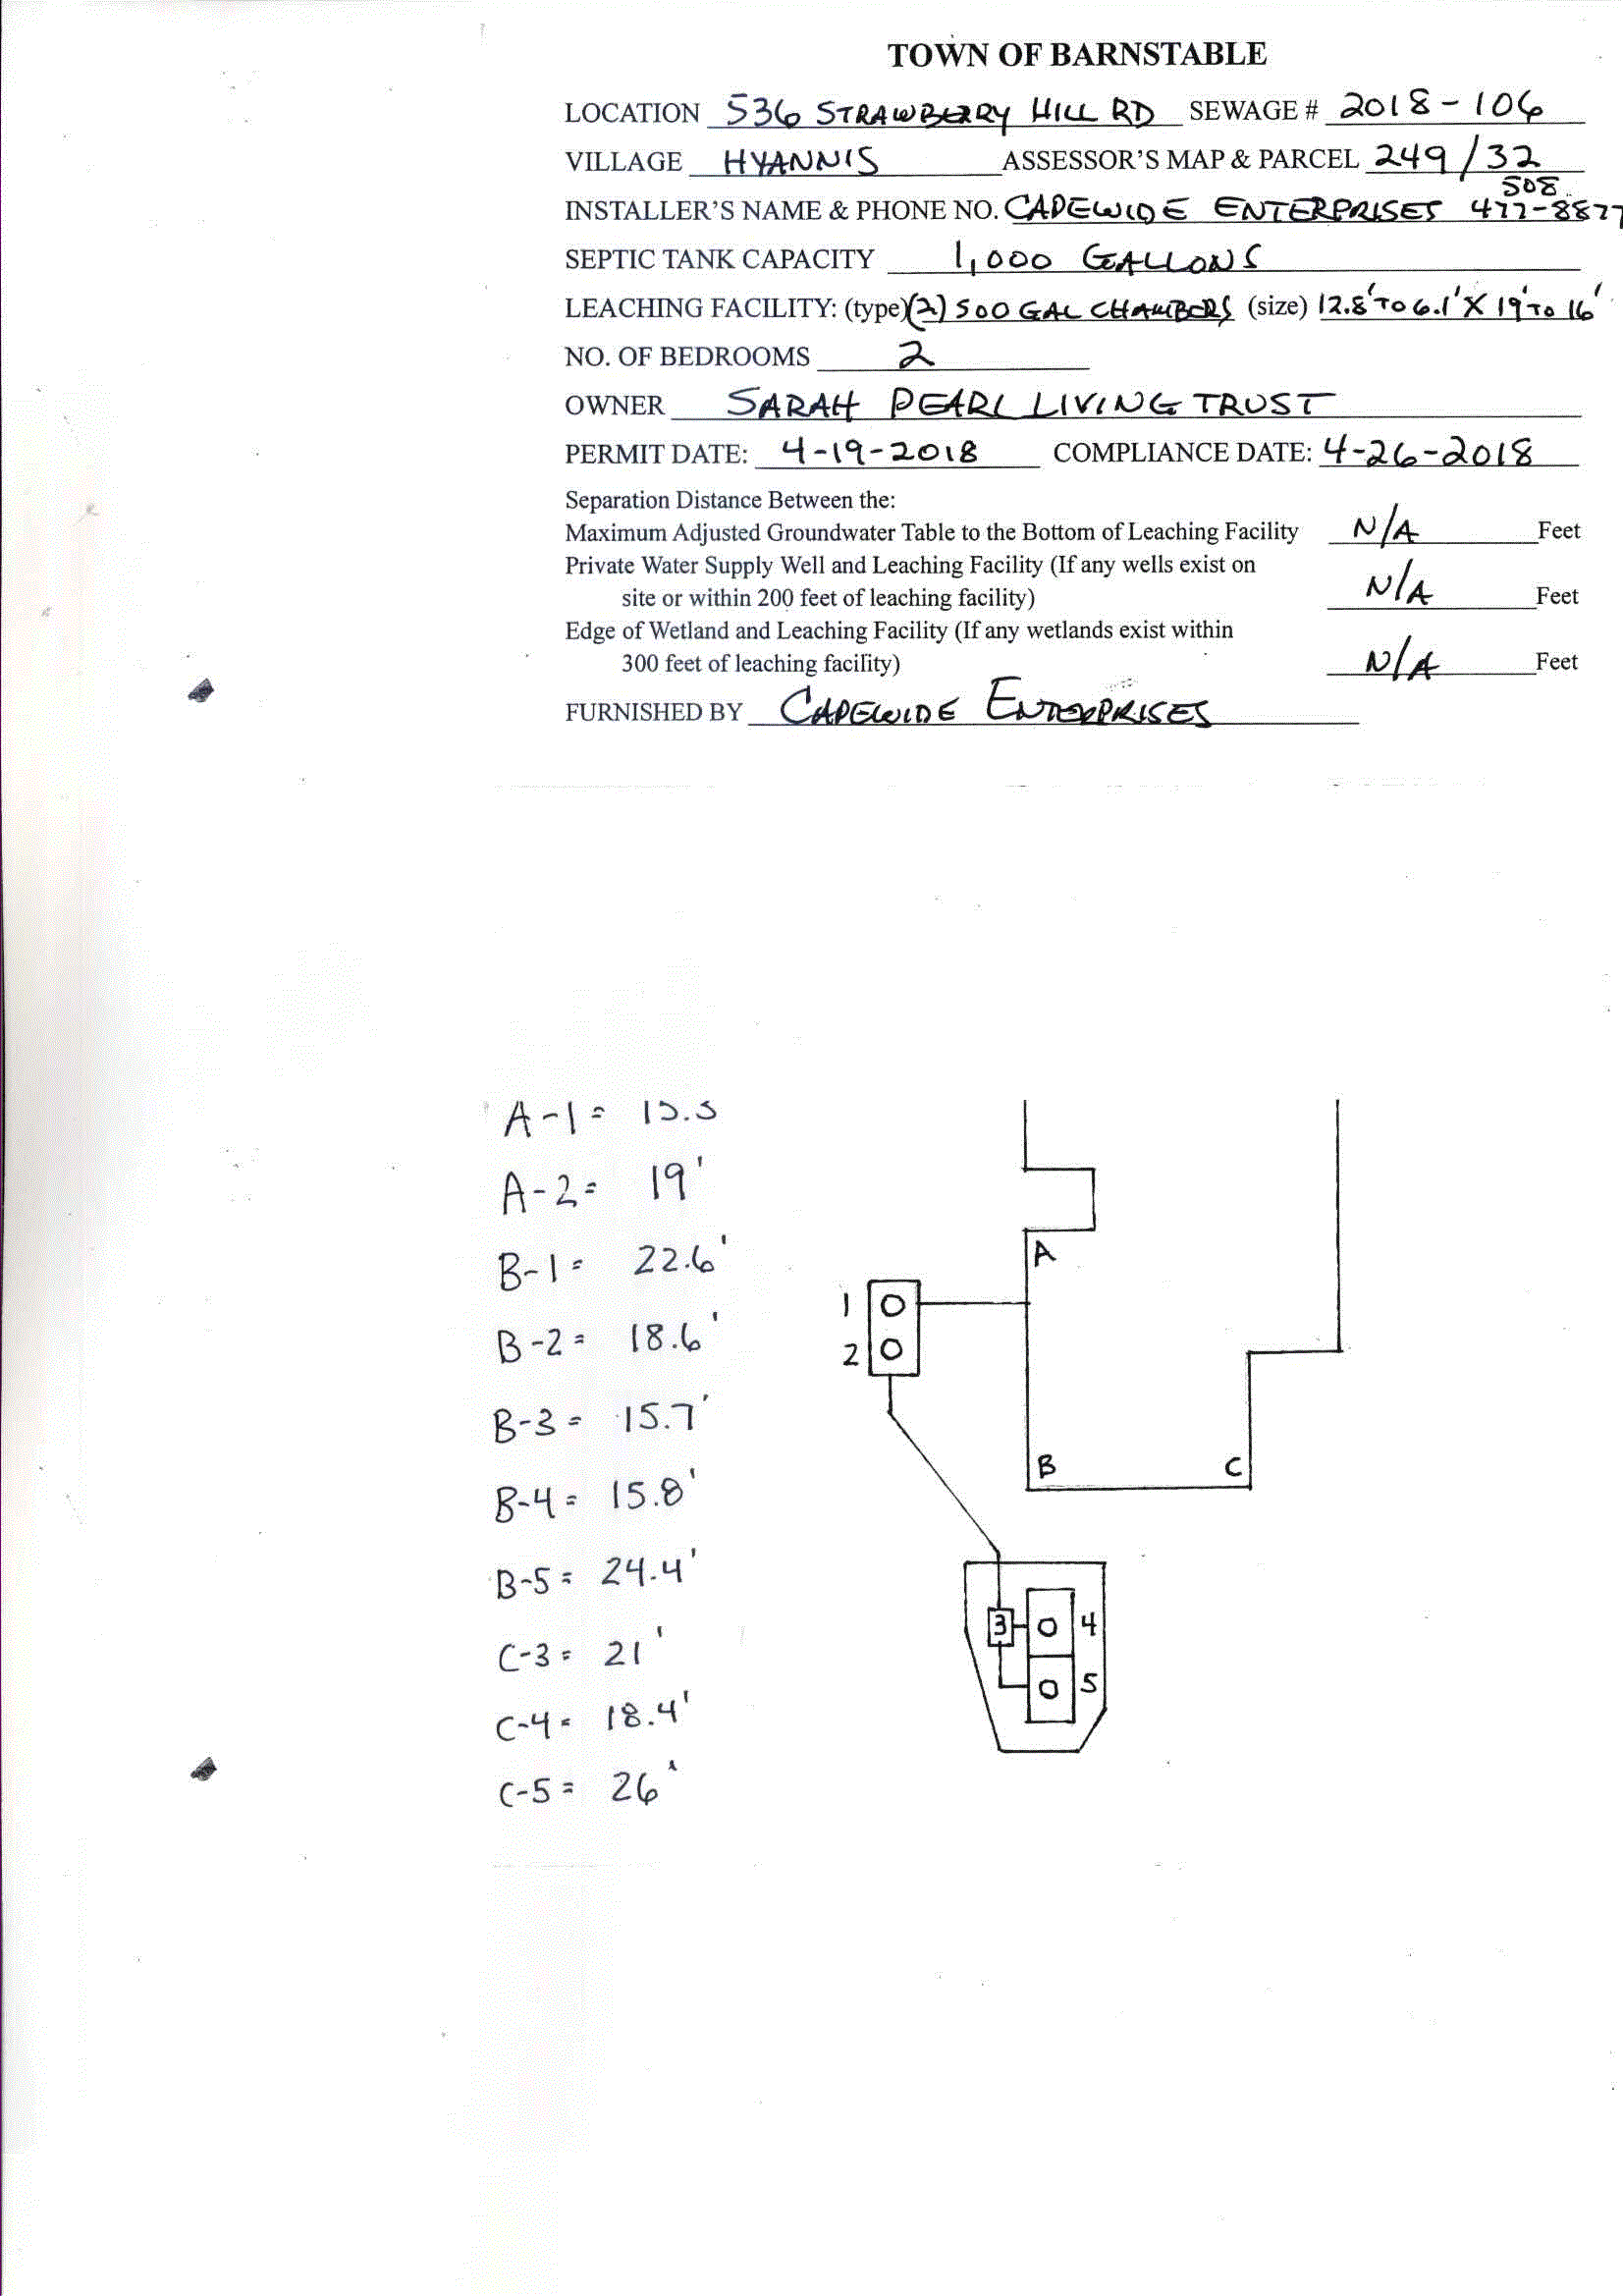 TOWN OF BARNSTABLE
LOCATION 536 STRAWBERRY HILL RD SEWAGE # 2018-106
VILLAGE HYANNIS ASSESSOR'S MAP & PARCEL 249/32
508
INSTALLER'S NAME & PHONE NO. CAPEWIDE ENTERPRISES 477-8877
SEPTIC TANK CAPACITY 1,000 GALLONS
LEACHING FACILITY: (type) (2) 500 GAL CHAMBERS (size) 12.8' TO 6.1' X 19' TO 16'
NO. OF BEDROOMS 2
OWNER SARAH PEARL LIVING TRUST
PERMIT DATE: 4-19-2018 COMPLIANCE DATE: 4-26-2018
Separation Distance Between the:
Maximum Adjusted Groundwater Table to the Bottom of Leaching Facility N/A Feet
Private Water Supply Well and Leaching Facility (If any wells exist on
site or within 200 feet of leaching facility) N/A Feet
Edge of Wetland and Leaching Facility (If any wetlands exist within
300 feet of leaching facility) N/A Feet
FURNISHED BY CAPEWIDE ENTERPRISES
A-1=
A-2= 19'
B-1= 22.6'
B-2= 18.6'
B-3= 15.7'
B-4= 15.8'
B-5= 24.4'
C-3= 21'
C-4= 18.4'
C-5= 26'
A
1
2
B C
3 4
5